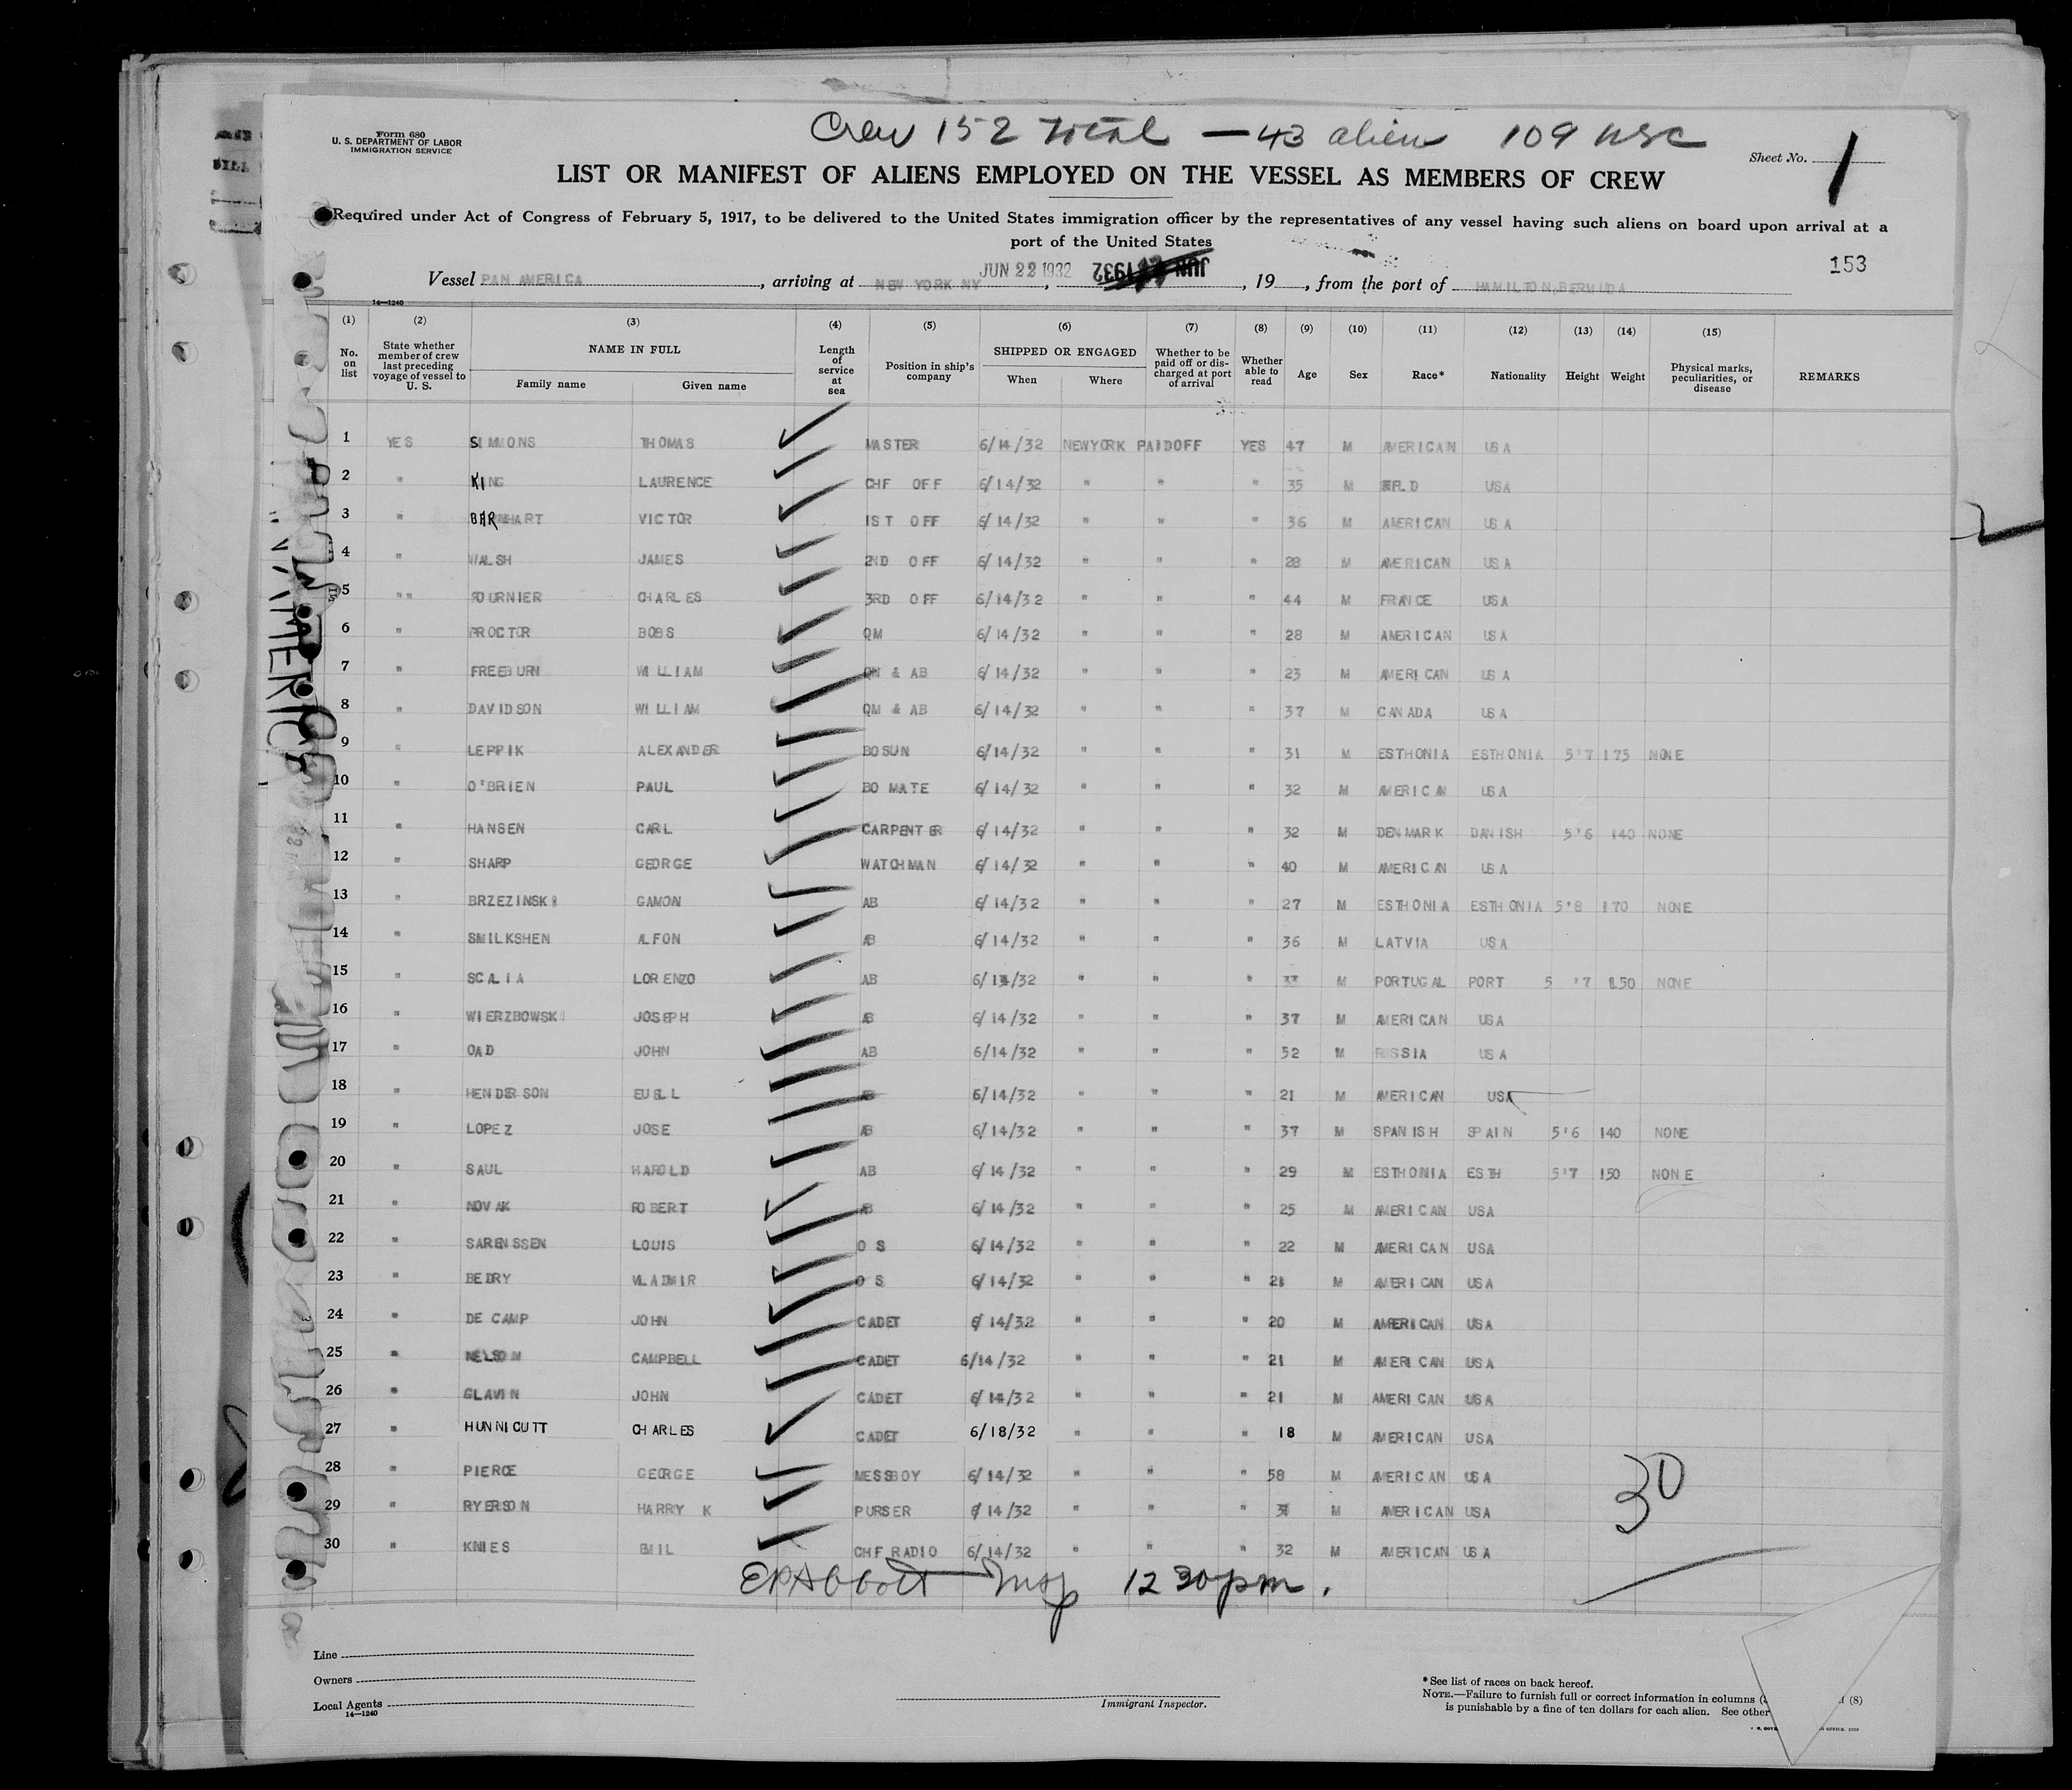 Crew 152 total — 43 alien 109 USC
Form 680
U. S. DEPARTMENT OF LABOR
IMMIGRATION SERVICE
Sheet No. 1
LIST OR MANIFEST OF ALIENS EMPLOYED ON THE VESSEL AS MEMBERS OF CREW
Required under Act of Congress of February 5, 1917, to be delivered to the United States immigration officer by the representatives of any vessel having such aliens on board upon arrival at a
port of the United States
153
Vessel PAN AMERICA, arriving at NEW YORK NY, JUN 22 1932, 19, from the port of HAMILTON, BERMUDA
14—1240
(1) (2) (3) (4) (5) (6) (7) (8) (9) (10) (11) (12) (13) (14) (15)
No. on list State whether member of crew last preceding voyage of vessel to U. S. NAME IN FULL Family name Given name Length of service at sea Position in ship's company SHIPPED OR ENGAGED When Where Whether to be paid off or discharged at port of arrival Whether able to read Age Sex Race* Nationality Height Weight Physical marks, peculiarities, or disease REMARKS
1 YES SIMMONS THOMAS MASTER 6/14/32 NEWYORK PAIDOFF YES 47 M AMERICAN USA
2 " KING LAURENCE CHF OFF 6/14/32 " " " 35 M USA
3 " BARNHART VICTOR 1ST OFF 6/14/32 " " " 36 M AMERICAN USA
4 " WALSH JAMES 2ND OFF 6/14/32 " " " 28 M AMERICAN USA
5 "" FOURNIER CHARLES 3RD OFF 6/14/32 " " " 44 M FRANCE USA
6 " PROCTOR BOBS QM 6/14/32 " " " 28 M AMERICAN USA
7 " FREEBURN WILLIAM QM & AB 6/14/32 " " 23 M AMERICAN USA
8 " DAVIDSON WILLIAM QM & AB 6/14/32 " " " 37 M CANADA USA
9 " LEPPIK ALEXANDER BOSUN 6/14/32 " " " 31 M ESTHONIA ESTHONIA 5'7 175 NONE
10 " O'BRIEN PAUL BO MATE 6/14/32 " " " 32 M AMERICAN USA
11 " HANSEN CARL CARPENTER 6/14/32 " " " 32 M DENMARK DANISH 5'6 140 NONE
12 " SHARP GEORGE WATCHMAN 6/14/32 " " " 40 M AMERICAN USA
13 " BRZEZINSKI GAMON AB 6/14/32 " " " 27 M ESTHONIA ESTHONIA 5'8 170 NONE
14 " SMILKSHEN ALFON AB 6/14/32 " " " 36 M LATVIA USA
15 " SCALIA LORENZO AB 6/14/32 " " " 33 M PORTUGAL PORT 5 '7 150 NONE
16 " WIERZBOWSKI JOSEPH AB 6/14/32 " " " 37 M AMERICAN USA
17 " OAD JOHN AB 6/14/32 " " " 52 M RUSSIA USA
18 " HENDERSON EUELL AB 6/14/32 " " " 21 M AMERICAN USA
19 " LOPEZ JOSE AB 6/14/32 " " " 37 M SPANISH SPAIN 5'6 140 NONE
20 " SAUL HAROLD AB 6/14/32 " " " 29 M ESTHONIA ESTH 5'7 150 NONE
21 " NOVAK ROBERT AB 6/14/32 " " " 25 M AMERICAN USA
22 " SARENSSEN LOUIS O S 6/14/32 " " " 22 M AMERICAN USA
23 " BEDRY VLADMIR O S 6/14/32 " " " M AMERICAN USA
24 " DE CAMP JOHN CADET 6/14/32 " " " 20 M AMERICAN USA
25 " NELSON CAMPBELL CADET 6/14/32 " " " 21 M AMERICAN USA
26 " GLAVIN JOHN CADET 6/14/32 " " " 21 M AMERICAN USA
27 " HUNNICUTT CHARLES CADET 6/18/32 " " " 18 M AMERICAN USA
28 " PIERCE GEORGE MESSBOY 6/14/32 " " " 58 M AMERICAN USA
29 " RYERSON HARRY K PURSER 6/14/32 " " " M AMERICAN USA
30 " KNIES EMIL CHF RADIO 6/14/32 " " " 32 M AMERICAN USA
30
EP Abbott Insp 12 30 pm.
Line
Owners
Local Agents
14—1240
Immigrant Inspector.
*See list of races on back hereof.
NOTE.—Failure to furnish full or correct information in columns (8)
is punishable by a fine of ten dollars for each alien. See other